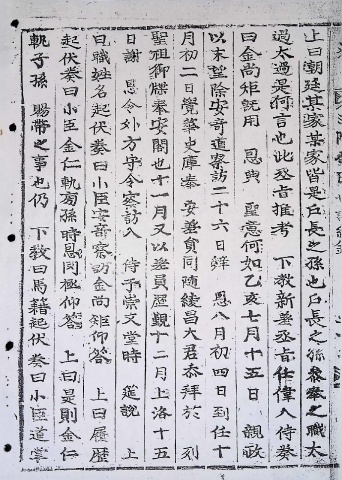 上曰朝廷某家某家皆是戶長之孫也戶長之孫參奉之職太
過太過是何言也此丞旨推考 下敎新差丞旨仕偉入侍奏
曰金尙矩旣用 恩典 聖意何如乙亥七月十五日 親政
以末望除安奇道察訪二十六日辭 恩八月初四日到任十
月初二日覺華史庫奉 安差員同隨綾昌大君忝拜於 列
聖祖御牒奉安閣也十一月又以差員歷觀十二月上洛十五
日謝 恩令外方守令察訪入 侍于崇文堂時 筵說 上
曰職姓名起伏奏曰小臣安奇察訪金尙矩仰答 上曰履歷
起伏奏曰小臣金仁軌 孫時恩 極仰答 上曰是則金仁
軌子孫 賜帶之事也仍 下敎曰馬籍起伏奏曰小臣道掌